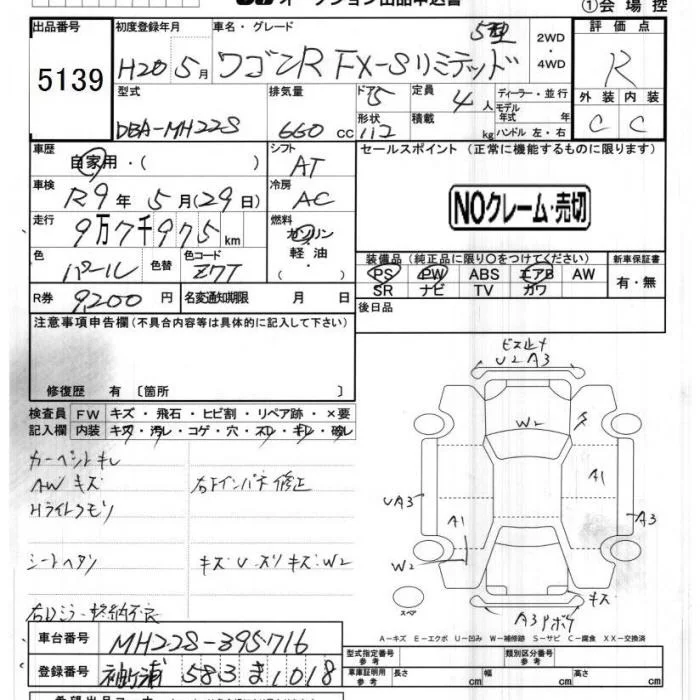 オークション出品申込書
①会場控
出品番号 初度登録年月 車名・グレード 評価点
5139 H20 5月 ワゴンR FX-Sリミテッド 5型 2WD・4WD R
型式 排気量 ドア 5 定員 4人 ディーラー・並行 外装 内装
DBA-MH22S 660 cc 形状 積載 kg モデル年式 年 ハンドル 左・右 C C
車歴 シフト セールスポイント (正常に機能するものに限ります)
自家用・( ) AT
車検 冷房
R9年 5月(29日) AC NOクレーム・売切
走行 燃料
9万7千975km ガソリン・軽油・
色 色替 色コード 装備品(純正品に限り○をつけてください) 新車保証書
パール Z7T PS PW ABS エアB AW 有・無
SR ナビ TV カワ
R券 9200円 名変通知期限 月 日 後日品
注意事項申告欄(不具合内容等は具体的に記入して下さい)
修復歴 有 〔箇所 〕
検査員 FW キズ・飛石・ヒビ割・リペア跡・×要
記入欄 内装 キズ・汚レ・コゲ・穴・スレ・キレ・破レ
カーペットキレ
AW キズ 右下インパネ修正
Hライトクモリ
シートヘタリ キズ・U・スリキズ・W2
右Dミラー格納不良
ビス止メ
U2 A3
W2
A1
UA3
A1
A3
W2
キズ
A3 Pボケ
スペア
A-キズ E-エクボ U-凹み W-補修跡 S-サビ C-腐食 XX-交換済
車台番号 MH22S-395716 型式指定番号 参考 類別区分番号 参考
登録番号 袖ケ浦 583 ま 1018 車庫証明用 参考 長さ cm 幅 cm 高さ cm
希望出品コーナー